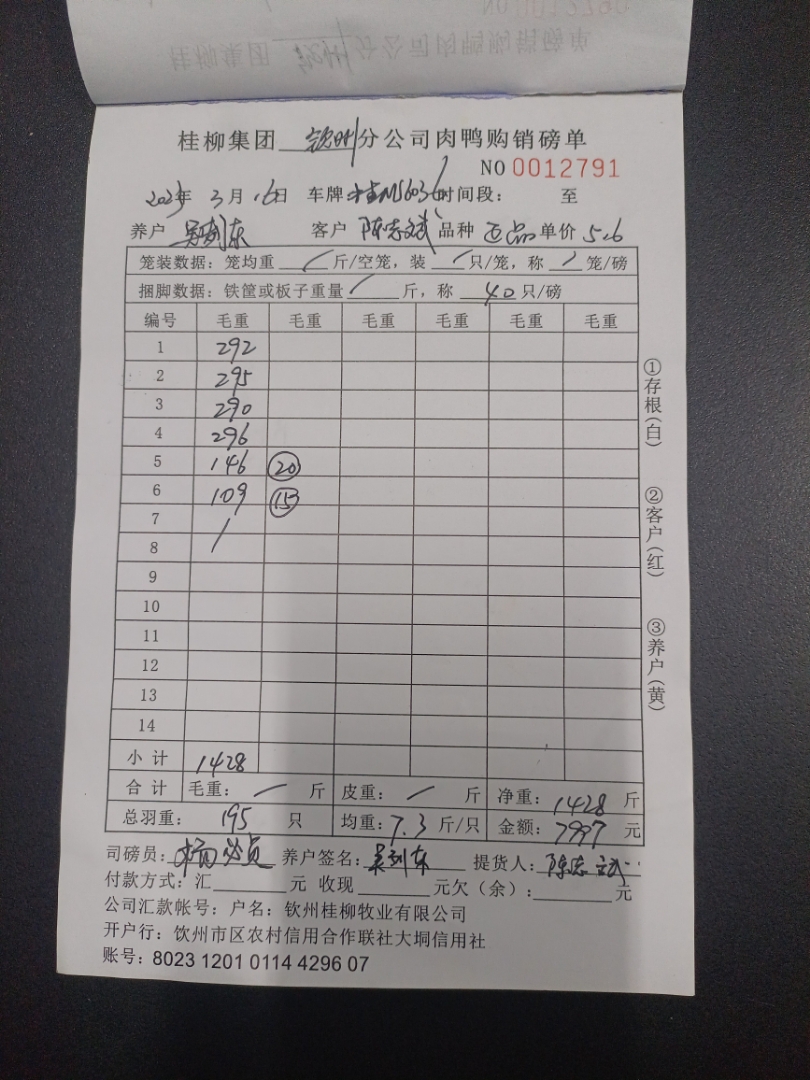 桂柳集团 钦州 分公司肉鸭购销磅单
NO 0012791
2023年 3月 16日 车牌 MS6036 时间段： 至
养户 吴剑东 客户 陈志斌 品种 正品 单价 5.6
笼装数据：笼均重 / 斤/空笼，装 / 只/笼，称 / 笼/磅
捆脚数据：铁筐或板子重量 / 斤，称 40 只/磅
编号 毛重 毛重 毛重 毛重 毛重 毛重
1 292
2 295
3 290
4 296
5 146 20
6 109 15
7 /
8
9
10
11
12
13
14
小计 1428
合计 毛重： / 斤 皮重： / 斤 净重： 1428 斤
总羽重： 195 只 均重： 7.3 斤/只 金额： 7997 元
司磅员： 杨 养户签名： 吴剑东 提货人： 陈志斌
付款方式：汇 元 收现 元欠（余）： 元
公司汇款帐号：户名：钦州桂柳牧业有限公司
开户行：饮州市区农村信用合作联社大垌信用社
账号：8023 1201 0114 4296 07
①存根(白)
②客户(红)
③养户(黄)